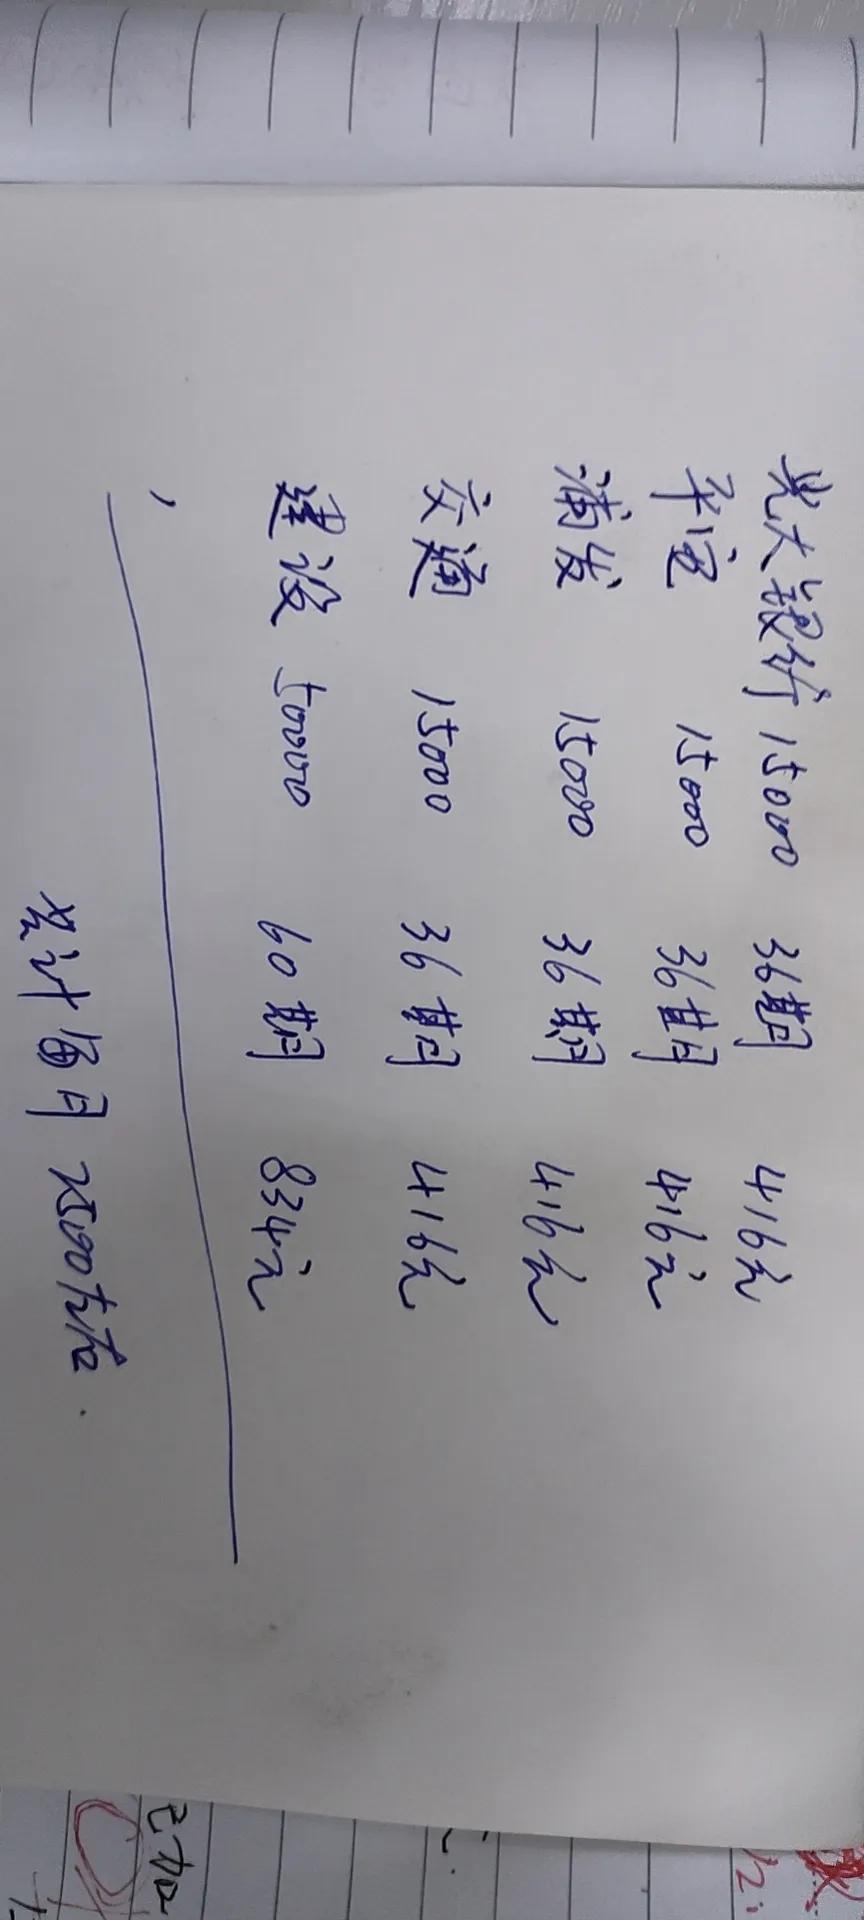 光大银行 15000 36期 416元
平安 15000 36期 416元
浦发 15000 36期 416元
交通 15000 36期 416元
建设 50000 60期 834元
总计每月 2500左右.
已加